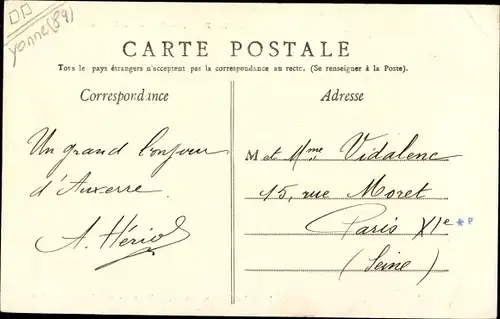 DD
Yonne (89)
CARTE POSTALE
Tous le pays étrangers n'acceptent pas la correspondance au recto. (Se renseigner à la Poste).
Correspondance
Adresse
Un grand bonjour
d'Auxerre
A. Hériot
M et Mme Vidalenc
15, rue Moret
Paris XIe
*P
(Seine)